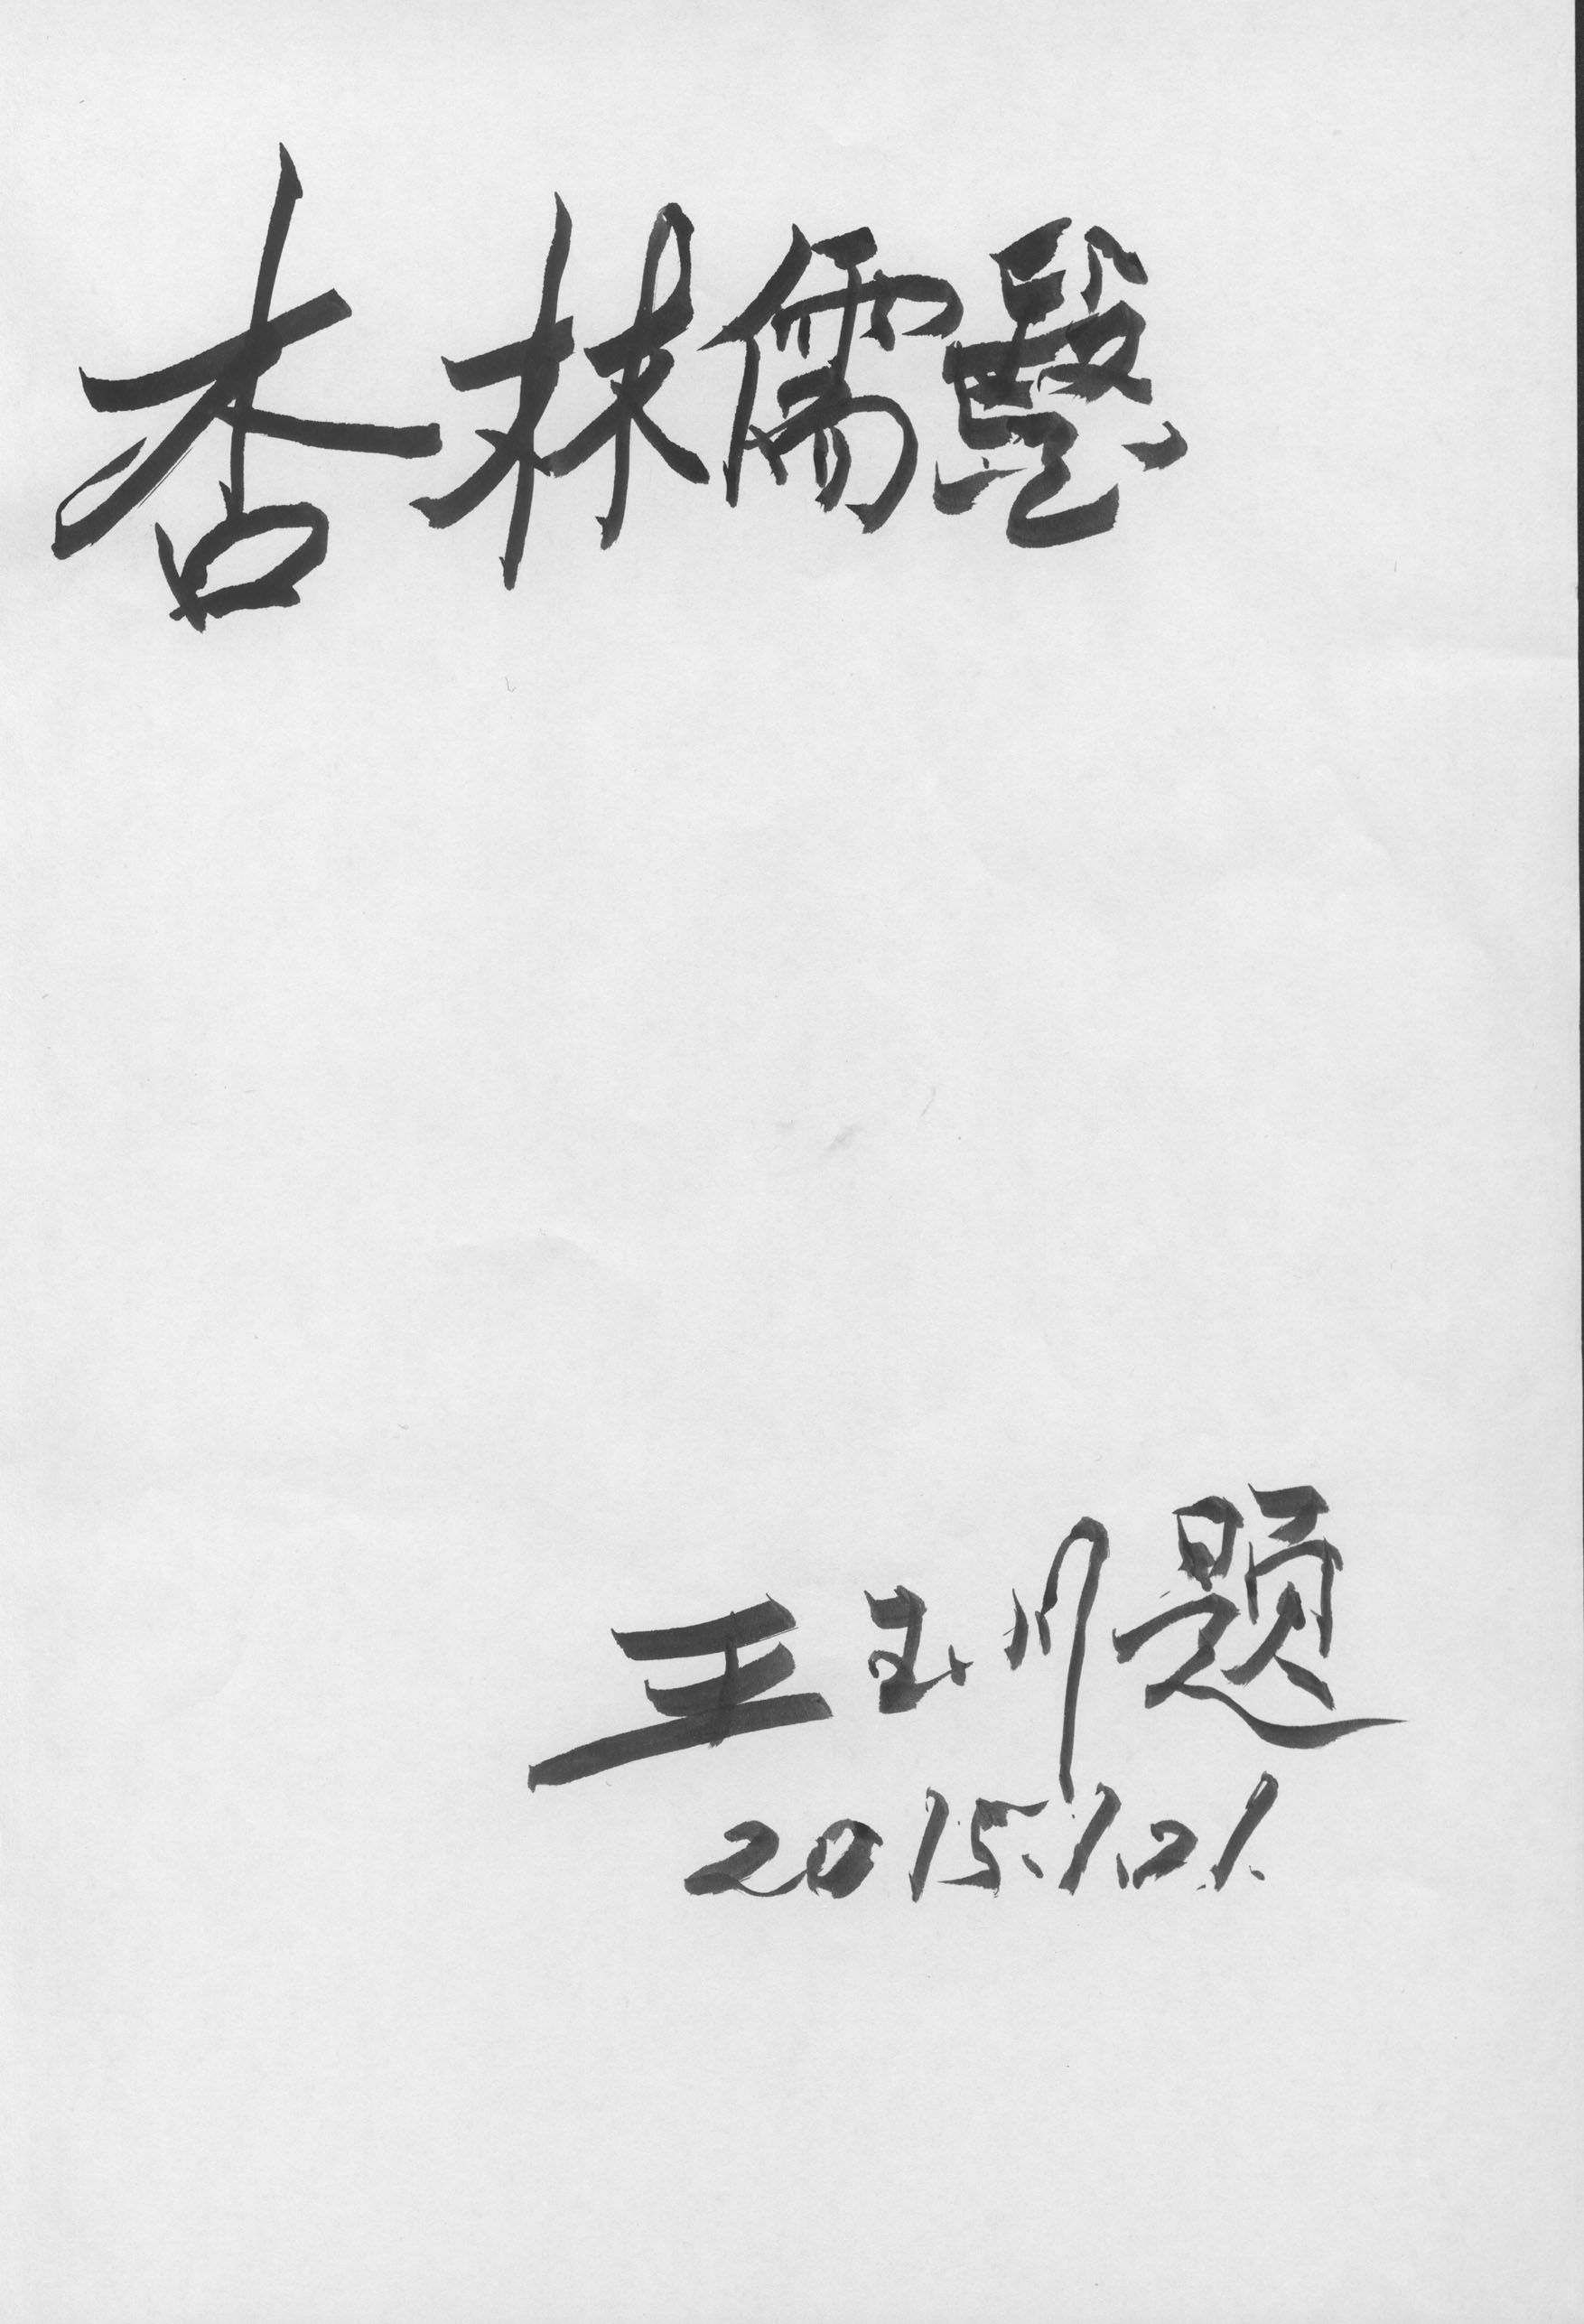 杏林儒醫
王玉川题
2015.1.21.